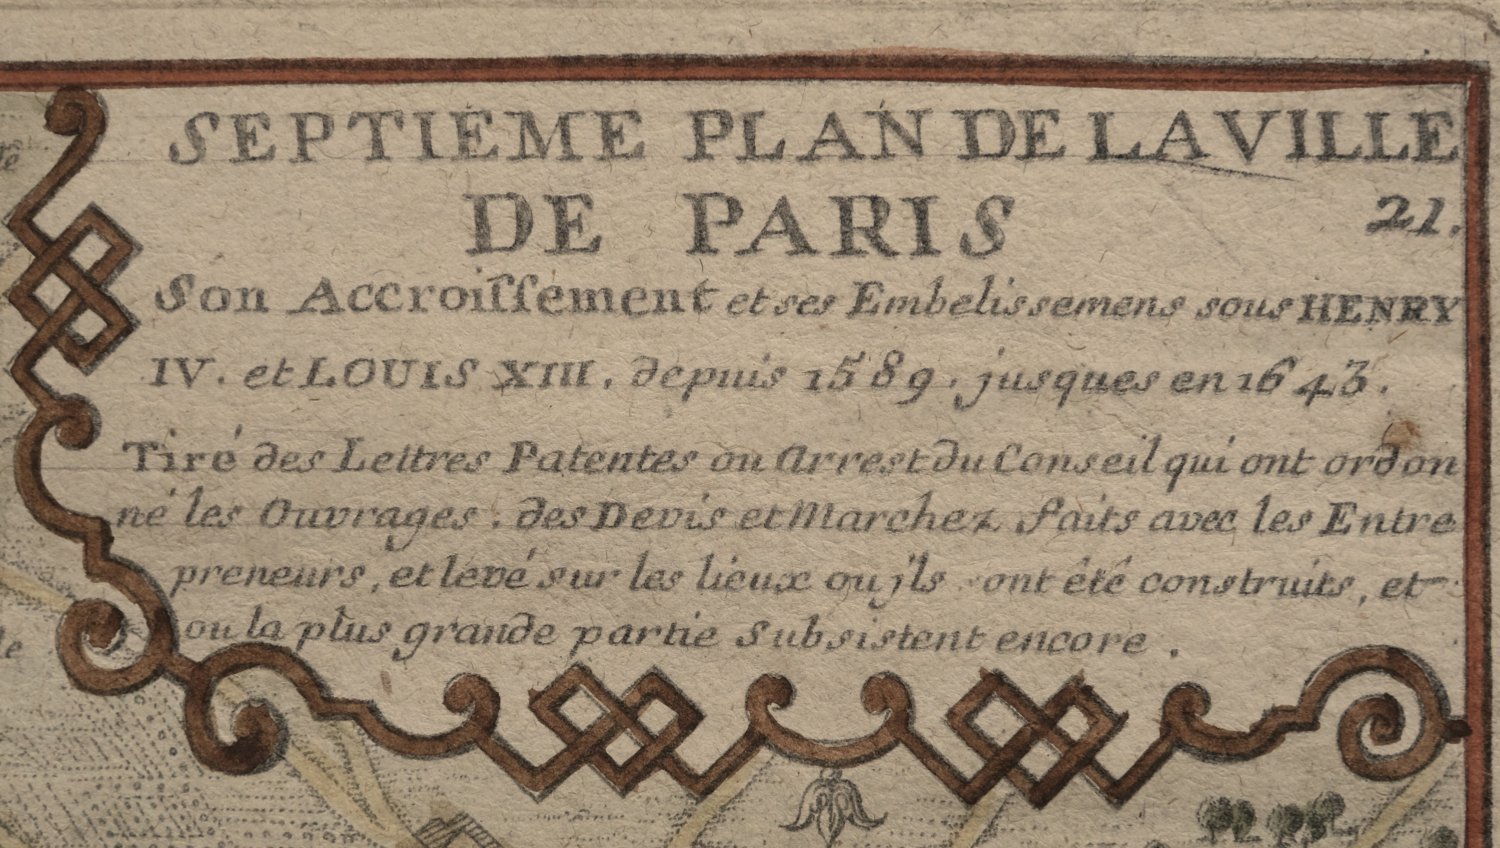 SEPTIÉME PLAN DE LA VILLE
DE PARIS 21.
Son Accroiſſement et ses Embelissemens sous HENRY
IV. et LOUIS XIII. depuis 1589. jusques en 1643.
Tiré des Lettres Patentes ou Arrest du Conseil qui ont ordon
né les Ouvrages. des Devis et Marchez faits avec les Entre
preneurs, et levé sur les lieux ou jls ont été construits, et
ou la plus grande partie subsistent encore.